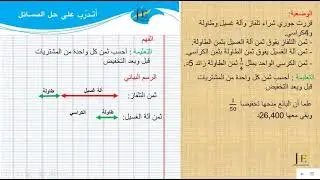 أتدرب على حل المسائل
الوضعية:
قررت جوري شراء تلفاز وآلة غسيل وطاولة و4كراسي.
- ثمن التلفاز يفوق ثمن آلة الغسيل بثمن الطاولة.
- ثمن آلة الغسيل يفوق ثمن الطاولة بثمن الكراسي.
- ثمن الكرسي الواحد يمثل 1/6 ثمن الطاولة زائد 5.
التعليمة : أحسب ثمن كل واحدة من المشتريات قبل وبعد التخفيض
علما أن البائع منحها تخفيضا 1/50
وبقي معها 26,400
الفهم
التعليمة : أحسب ثمن كل واحدة من المشتريات قبل وبعد التخفيض
الرسم البياني
آلة الغسيل
طاولة
ثمن التلفاز:
الكراسي
طاولة
ثمن آلة الغسيل: